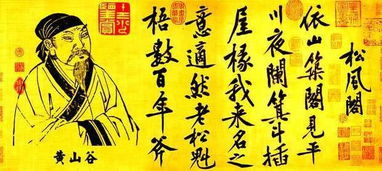 松風閣
依山築閣見平
川夜闌箕斗插
屋椽我來名之
意適然老松魁
梧數百年斧
黄山谷